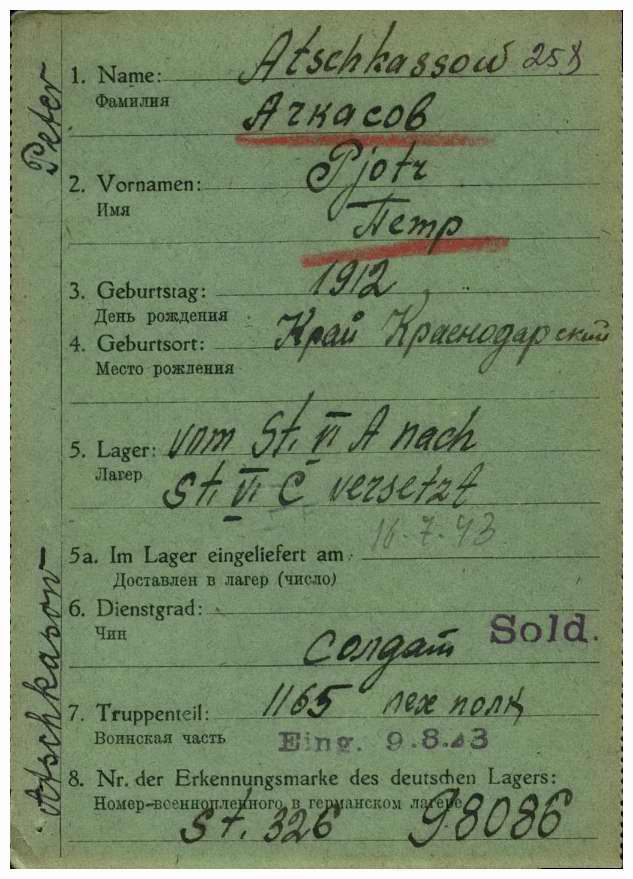 1. Name: Atschkassow 258
Фамилия
Ачкасов
2. Vornamen: Pjotr
Имя
Петр
3. Geburtstag: 1912
День рождения
4. Geburtsort: Край Краснодарский
Место рождения
5. Lager: vom St. VI A nach
Лагер
St. VI C versetzt
16.7.43
5a. Im Lager eingeliefert am:
Доставлен в лагер (число)
6. Dienstgrad:
Чин
Sold.
солдат
7. Truppenteil: 1165 пех полк
Воинская часть
Eing. 9.8.43
8. Nr. der Erkennungsmarke des deutschen Lagers:
Номер-военнопленного в германском лагере
St. 326 98086
Atschkasow Peter